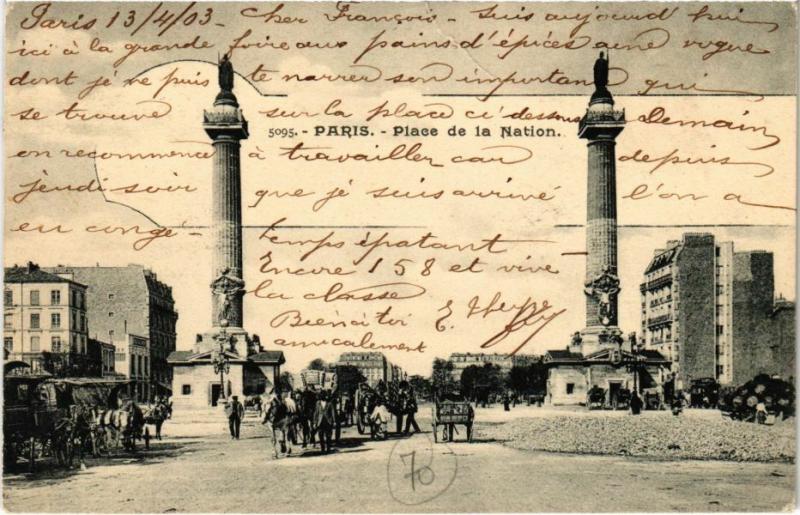 Paris 13/4/03 - Cher François - Suis aujourd'hui
ici à la grande foire aux pains d'épices ai une vogue
dont je ne puis te narrer son important qui
se trouve sur la place ci dessous Demain
5095. - PARIS. - Place de la Nation.
on recommence à travailler car depuis
jeudi soir que je suis arrivé l'on a
eu congé - temps épatant
Encore 158 et vive
la classe
Bien à toi E.
amicalement
70